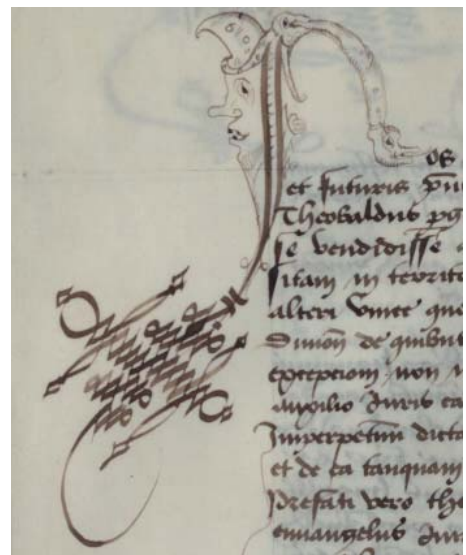 Nos
et futuris
Theobaldus
se vendidisse
sitam in territo
alteri vinee quo
Simon de quibus
excepcioni non
auxilio Juris ca
Imperpetuū dicta
et de ea tanquam
Prefati vero The
euuangelus Jura